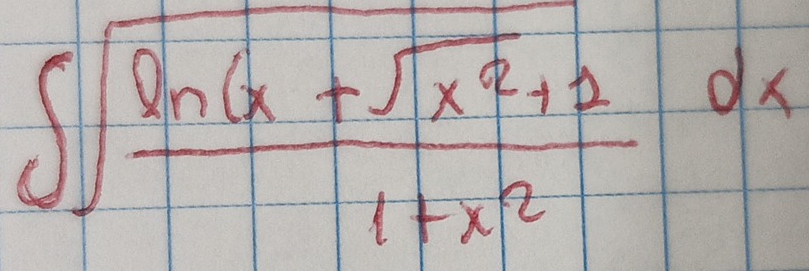 ∫√(ln(x + √x² + 1 / 1 + x²) dx